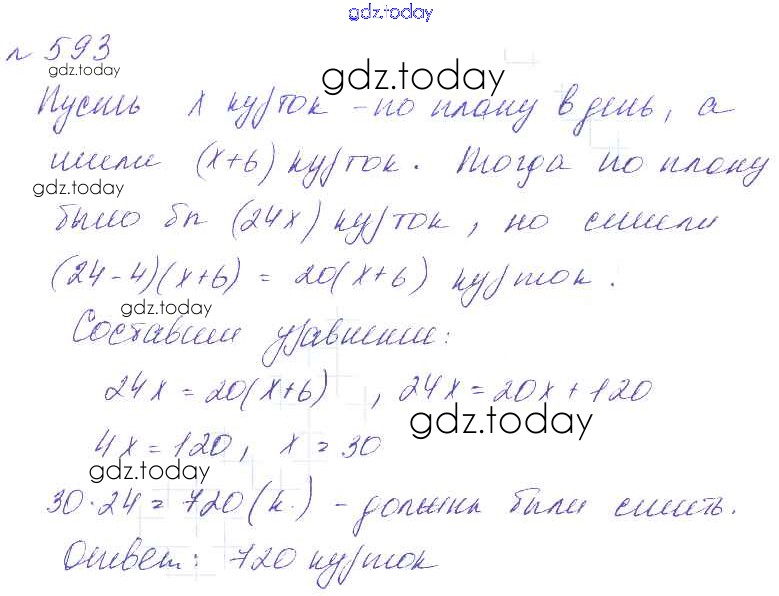 gdz.today
№ 593
gdz.today
gdz.today
Пусть x курток - по плану в день, а
шили (x+6) курток. Тогда по плану
gdz.today
было бы (24x) курток, но сшили
(24-4)(x+6) = 20(x+6) курток.
gdz.today
Составим уравнение:
24x = 20(x+6), 24x = 20x + 120
gdz.today
4x = 120, x = 30
gdz.today
30·24 = 720 (к.) - должны были сшить.
Ответ: 720 курток